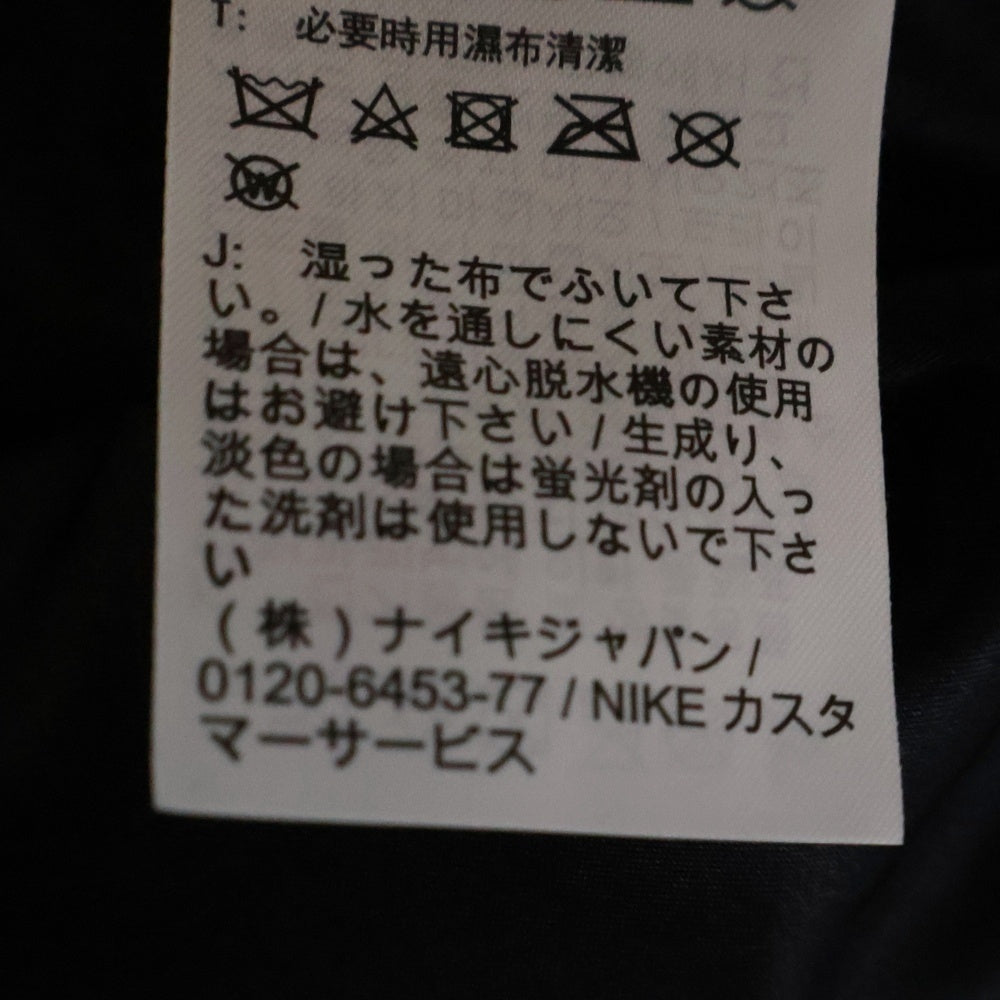 T: 必要時用濕布清潔
W
J: 湿った布でふいて下さ
い。/ 水を通しにくい素材の
場合は、遠心脱水機の使用
はお避け下さい / 生成り、
淡色の場合は蛍光剤の入っ
た洗剤は使用しないで下さ
い
(株) ナイキジャパン /
0120-6453-77 / NIKE カスタ
マーサービス